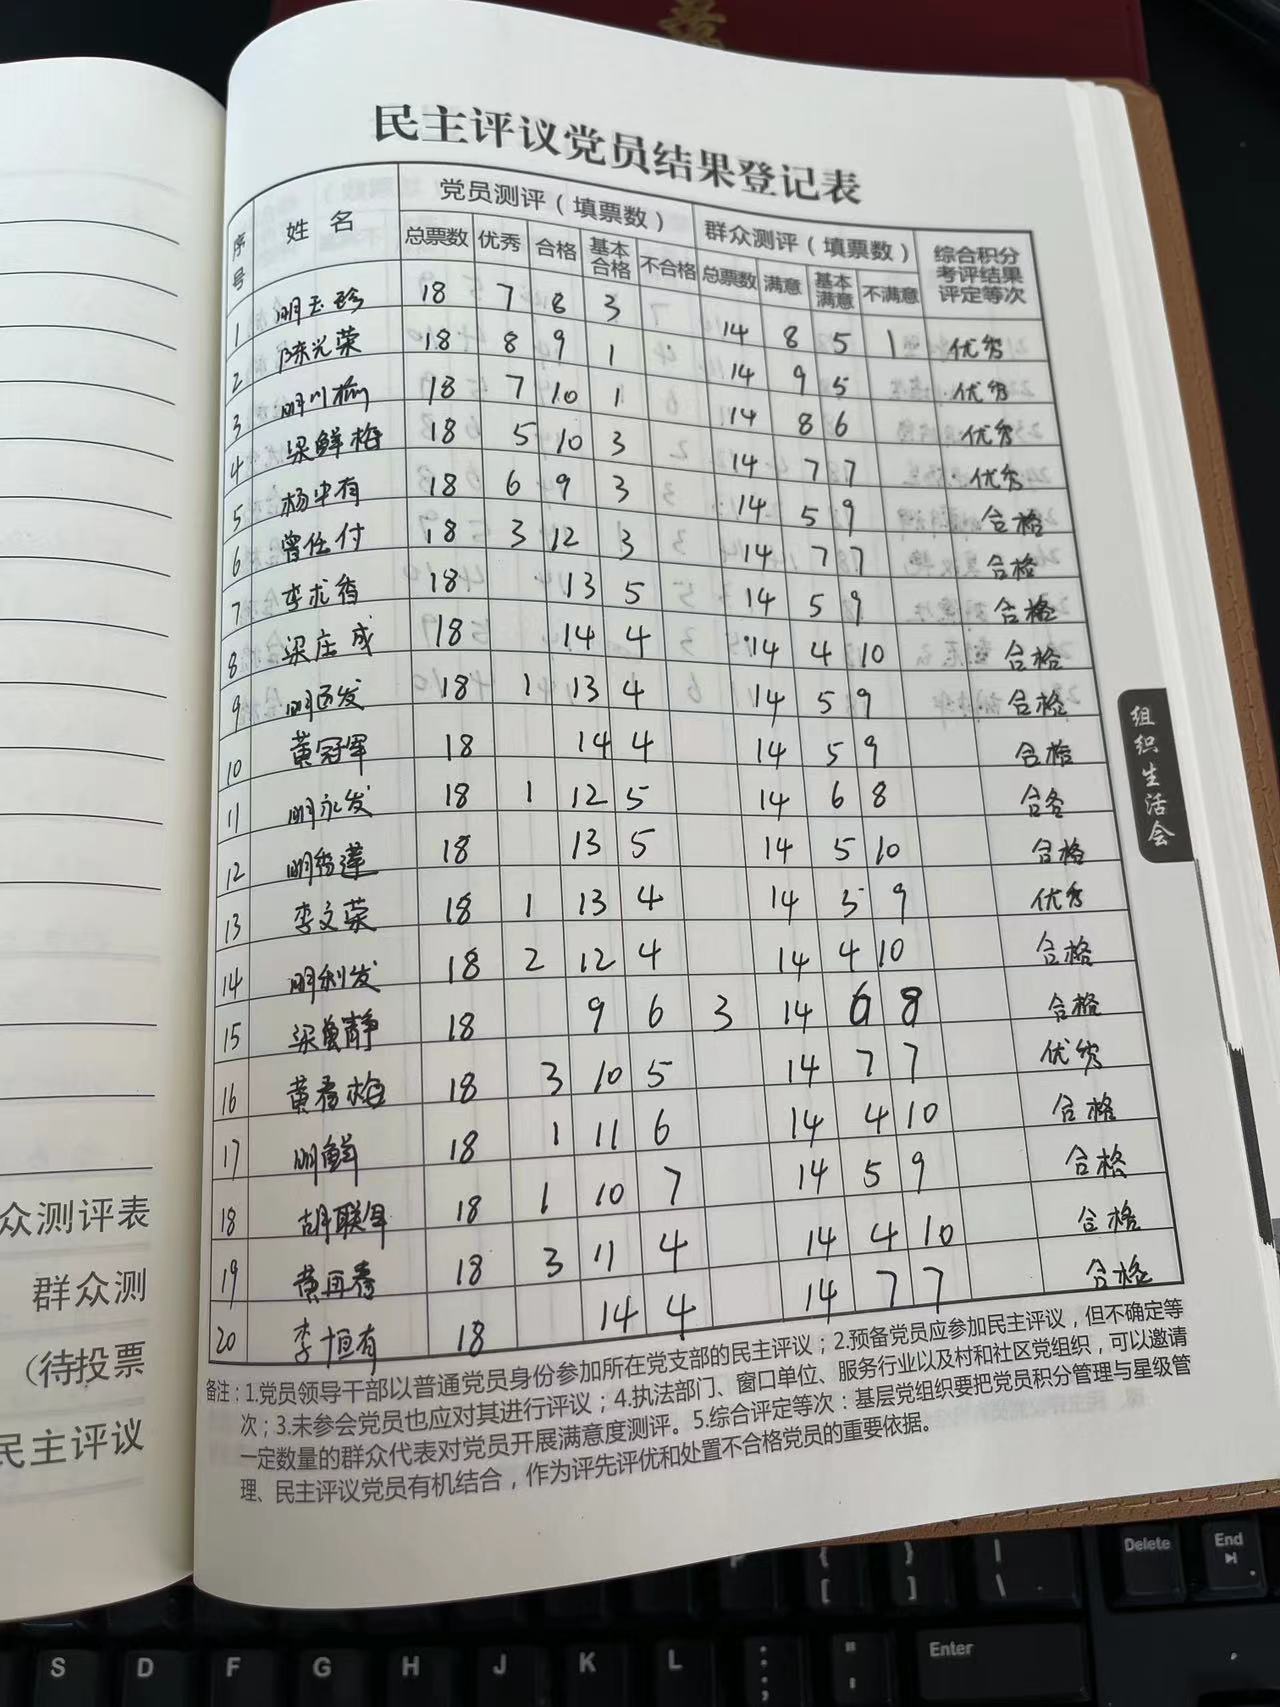 民主评议党员结果登记表
序号 姓名 党员测评（填票数） 群众测评（填票数） 综合积分考评结果评定等次
总票数 优秀 合格 基本合格 不合格 总票数 满意 基本满意 不满意
1 明玉珍 18 7 8 3 14 8 5 1 优秀
2 陈光荣 18 8 9 1 14 9 5 优秀
3 明川榆 18 7 10 1 14 8 6 优秀
4 梁鲜梅 18 5 10 3 14 7 7 优秀
5 杨中有 18 6 9 3 14 5 9 合格
6 曾任付 18 3 12 3 14 7 7 合格
7 李求香 18 13 5 14 5 9 合格
8 梁庄成 18 14 4 14 4 10 合格
9 明发 18 1 13 4 14 5 9 合格
10 黄冠军 18 14 4 14 5 9 合格
11 明永发 18 1 12 5 14 6 8 合各
12 明秀莲 18 13 5 14 5 10 合格
13 李文荣 18 1 13 4 14 5 9 优秀
14 明利发 18 2 12 4 14 4 10 合格
15 梁静 18 9 6 3 14 6 8 合格
16 黄春梅 18 3 10 5 14 7 7 优秀
17 明鲜 18 1 11 6 14 4 10 合格
18 胡联军 18 1 10 7 14 5 9 合格
19 黄再春 18 3 11 4 14 4 10 合格
20 李恒有 18 14 4 14 7 7 合格
备注：1.党员领导干部以普通党员身份参加所在党支部的民主评议；2.预备党员应参加民主评议，但不确定等
次；3.未参会党员也应对其进行评议；4.执法部门、窗口单位、服务行业以及村和社区党组织，可以邀请
一定数量的群众代表对党员开展满意度测评。5.综合评定等次：基层党组织要把党员积分管理与星级管
理、民主评议党员有机结合，作为评先评优和处置不合格党员的重要依据。
组织生活会
众测评表
群众测
（待投票
民主评议
Delete End
P { [ } ] | \
S D F G H J K L : ; " ' Enter